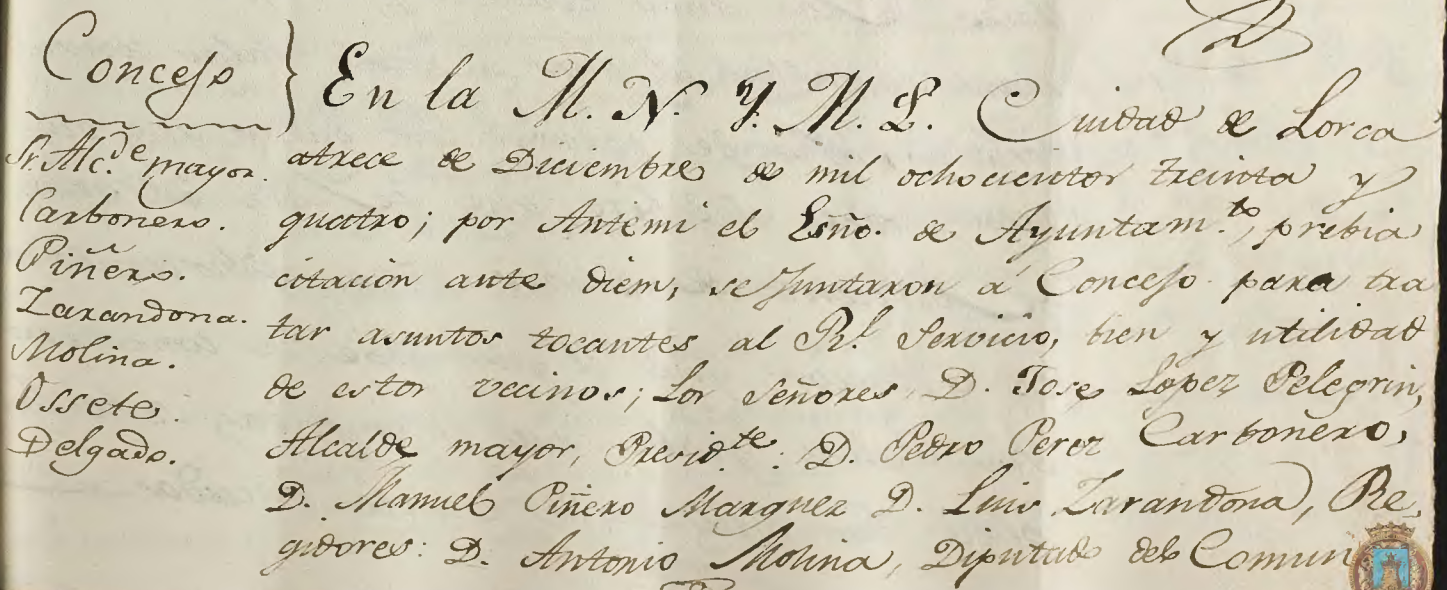 Concejo
Sr. Alc.de mayor.
Carbonero.
Piñero.
Zarandona.
Molina.
Ossete.
Delgado.
En la M. N. Y. M. L. Ciudad de Lorca
atrece de Diciembre de mil ochocientos treinta y
quatro; por Antemi el Esño. de Ayuntam.to, prebia
citación ante diem, se Juntaron á Concejo para tra
tar asuntos tocantes al Rl. Servicio, bien y utilidad
de estos vecinos; Los Señores D. Jose Lopez Pelegrin,
Alcalde mayor, Presid.te: D. Pedro Perez Carbonero,
D. Manuel Piñero Marquez D. Luis Zarandona, Re
gidores: D. Antonio Molina, Diputado del Comun